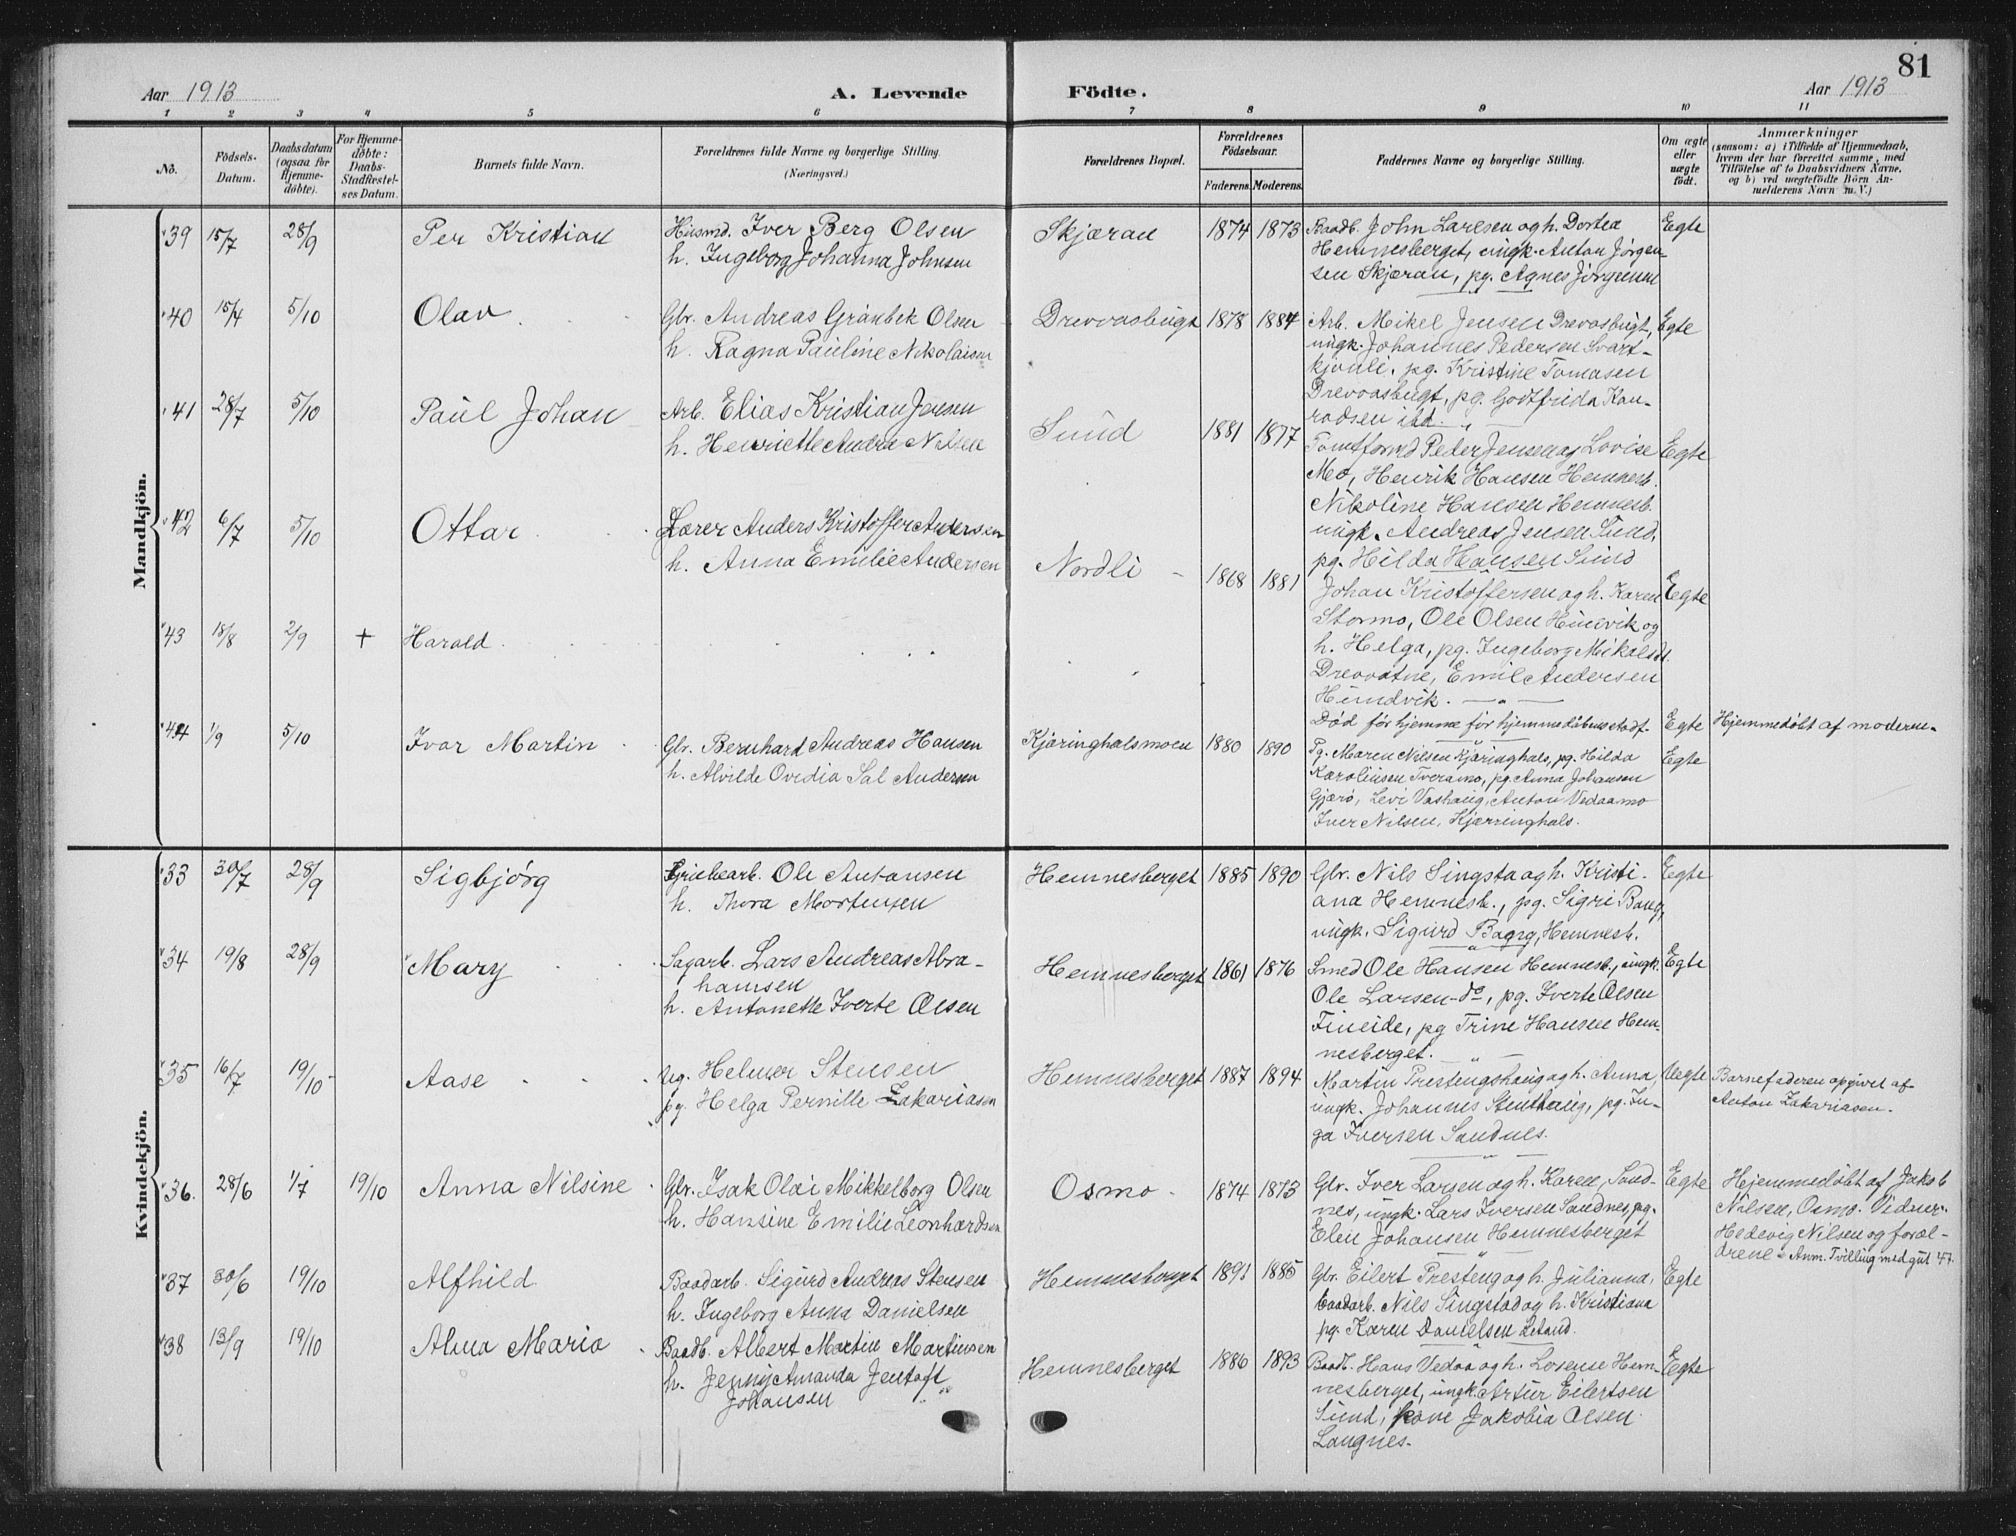 81
Aar 1913
A. Levende
Födte.
Aar 1913
1 2 3 4 5 6 7 8 9 10 11
No.
Födsels-Datum.
Daabsdatum (ogsaa for Hjemme-døbte).
For Hjemme-døbte: Daabs-Stadfæstel-ses Datum.
Barnets fulde Navn.
Forældrenes fulde Navne og borgerlige Stilling. (Næringsvei.)
Forældrenes Bopæl.
Forældrenes Födselsaar.
Faderens. Moderens.
Faddernes Navne og borgerlige Stilling.
Om ægte eller uægte født.
Anmærkninger
(saasom: a) i Tilfælde af Hjemmedaab,
hvem der har forrettet samme, med
Tilföielse af to Daabsvidners Navne,
og b) ved uægtefödte Börn An-
melderens Navn m. V.)
Mandkjön.
39 15/7 28/9 Per Kristian
Husmd. Iver Berg Olsen
h. Ingeborg Johanna Johnsen
Skjæran 1874 1873
Baadb. John Larssen og h. Dortea
Hemnesberget, ungk. Anton Jörgen-
sen Skjæran, pg. Agnes Jörgensen
Egte
40 15/4 5/10 Olav
Gbr. Andreas Granbek Olsen
h. Ragna Pauline Nikolaisen
Drevvasbugt 1878 1884
Arb. Mikel Jensen Drevasbugt,
ungk. Johannes Pedersen Svart-
pg. Kristine Tomasen
Drevvasbugt, pg. Godtfrida Kon-
radsen ibd.
Egte
41 28/7 5/10 Paul Johan
Arb. Elias Kristian Jensen
h. Henriette Andrea Nilsen
Sund 1881 1877
Peder Jensen og Lovise
Mo, Henrik Hansen Hemnesb.
Nikoline Hansen Hemnesb.
ungk. Andreas Jensen Sund,
pg. Hilda Hansen Sund
Egte
42 6/7 5/10 Ottar
Lærer Anders Kristoffer Andersen
h. Anna Emilie Andersen
Nordli 1868 1881
Johan Kristoffersen og h. Karen
Stormo, Ole Olsen Hundvik og
h. Helga, pg. Ingeborg Mikalsdt.
Drevvatne, Emil Andersen
Hundvik.
Egte
43 18/8 2/9 + Harald
Död för hjemme för hjemmedåbens stadf.
Egte
Hjemmedöbt af moderen.
44 1/9 5/10 Ivar Martin
Gbr. Bernhard Andreas Hansen
h. Alvilde Ovidia Sal Andersen
Kjæringhalsmoen 1880 1890
Pg. Maren Nilsen Kjæringhals, pg. Hilda
Karolinsen Tveramo, pg. Anna Johansen
Gjærö, Levi Vashaug, Anton Vedaamo
Iver Nilsen, Kjærringhals.
Egte
Kvindekjön.
33 30/7 28/9 Sigbjørg
Ole Antonsen
h. Thora Mortensen
Hemnesberget 1885 1890
Gbr. Nils Singsta og h. Kristi-
ana Hemnesb., pg. Sigri Bang,
ungk. Sigurd Bagng, Hemnesb.
Egte
34 19/8 28/9 Mary
Sagarb. Lars Andreas Abra-
hamsen
h. Antonette Iverte Olsen
Hemnesberget 1861 1876
Smed Ole Hansen Hemnesb., ungk.
Ole Larsen do, pg. Iverte Olsen
Fineide, pg Trine Hansen Hem-
nesberget.
Egte
35 16/7 19/10 Aase
ug. Helmer Stensen
pg. Helga Pernille Zakariasen
Hemnesberget 1887 1894
Martin Prestengshaug og h. Anna,
ungk. Johannes Stenhaug, pg. In-
ga Iversen Sandnes.
Uegte
Barnefaderen opgivet af
Anton Zakariasen.
36. 28/6 1/7 19/10 Anna Nilsine
Gbr. Isak Olai Mikkelborg Olsen
h. Hansine Emilie Leonhardsen
Osmo 1874 1873
Gbr. Iver Larsen og h. Karen, Sand-
nes, ungk. Lars Iversen Sandnes, pg.
Elen Johansen Hemnesberget
Egte
Hjemmedöbt af Jakob
Nilsen, Osmo. Vidner:
Hedevig Nilsen og foræl-
drene. Anm. Tvilling med gut 47.
37 30/6 19/10 Alfhild
Baadarb. Sigurd Andreas Stensen
h. Ingeborg Anna Danielsen
Hemnesberget 1891 1885
Gbr. Eilert Presteng og h. Julianna,
baadarb. Nils Singstad og h. Kristiana
pg. Karen Danielsen Leland.
Egte
38 13/9 19/10 Alma Maria
Baadb. Albert Martin Martinsen
h. Jenny Amanda Jentoft
Johansen
Hemnesberget 1886 1893
Baadb. Hans Vedaa og h. Lorense Hem-
nesberget, ungk. Artur Eilertsen
Sund, kone Jakobia Olsen
Langnes.
Egte